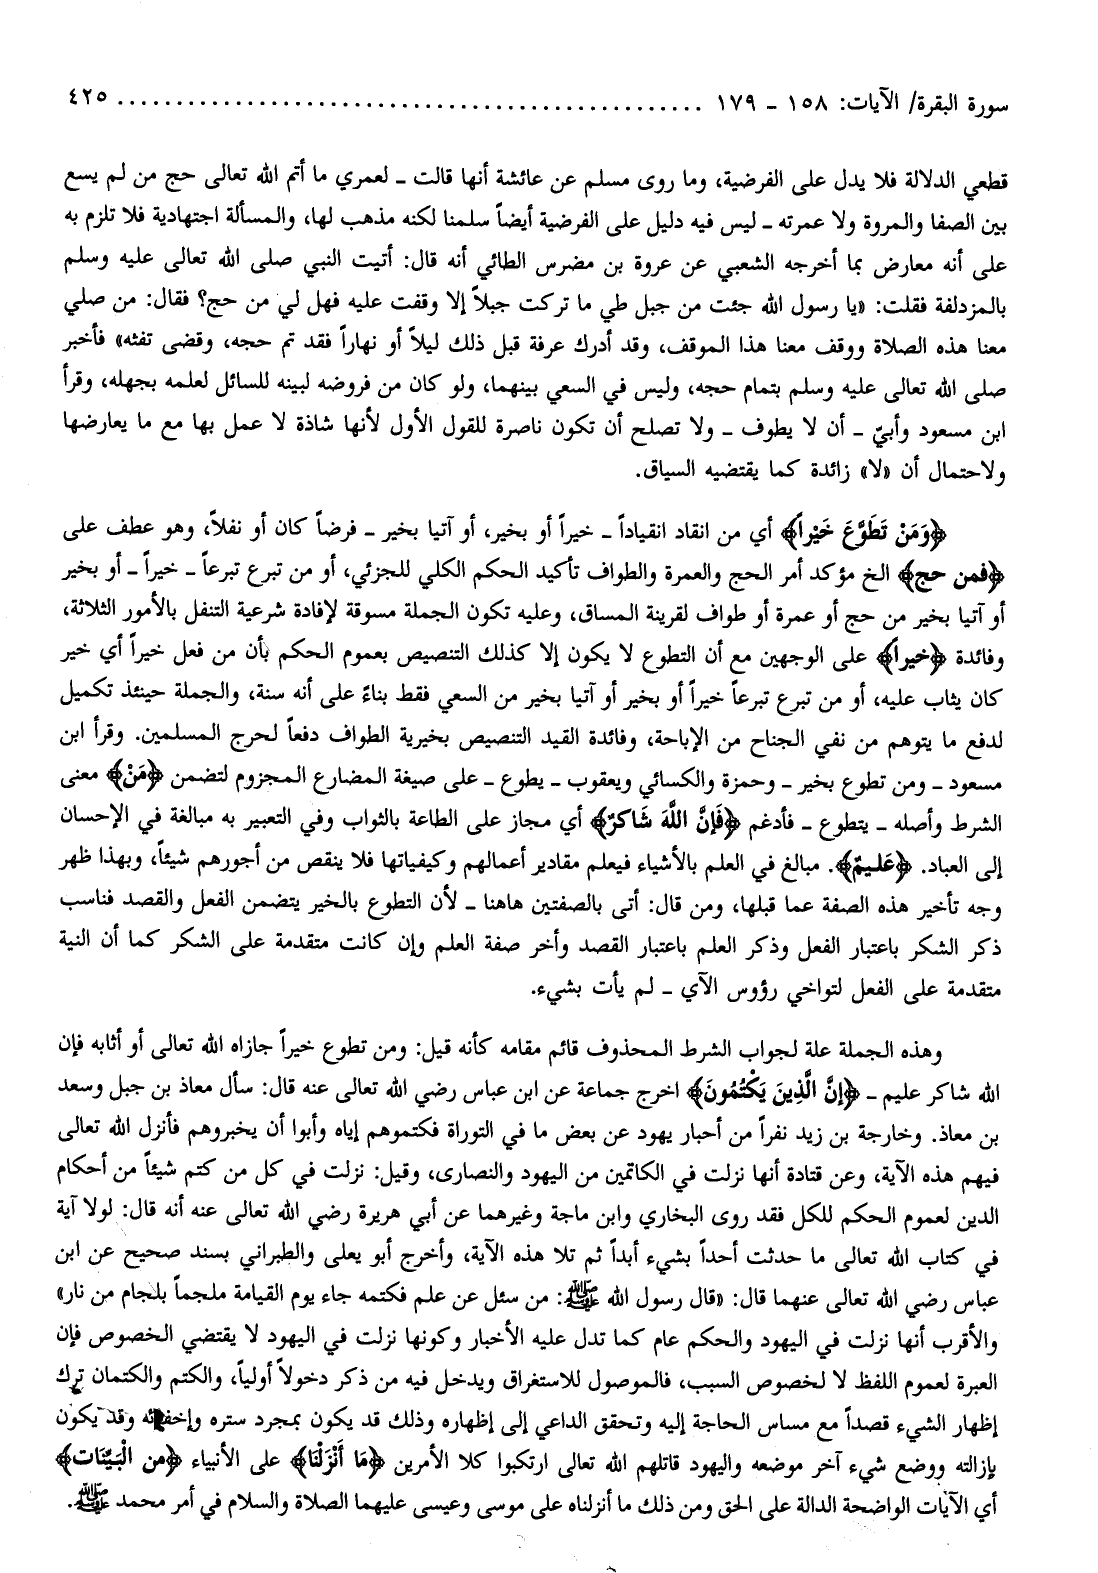 سورة البقرة/ الآيات: ١٥٨ ـ ١٧٩ ................................................ ٤٢٥
قطعي الدلالة فلا يدل على الفرضية، وما روى مسلم عن عائشة أنها قالت ـ لعمري ما أتم الله تعالى حج من لم يسع
بين الصفا والمروة ولا عمرته ـ ليس فيه دليل على الفرضية أيضاً سلمنا لكنه مذهب لها، والمسألة اجتهادية فلا تلزم به
على أنه معارض بما أخرجه الشعبي عن عروة بن مضرس الطائي أنه قال: أتيت النبي صلى الله تعالى عليه وسلم
بالمزدلفة فقلت: «يا رسول الله جئت من جبل طي ما تركت جبلاً إلا وقفت عليه فهل لي من حج؟ فقال: من صلي
معنا هذه الصلاة ووقف معنا هذا الموقف، وقد أدرك عرفة قبل ذلك ليلاً أو نهاراً فقد تم حجه، وقضى تفثه» فأخبر
صلى الله تعالى عليه وسلم بتمام حجه، وليس في السعي بينهما، ولو كان من فروضه لبينه للسائل لعلمه بجهله، وقرأ
ابن مسعود وأبيّ ـ أن لا يطوف ـ ولا تصلح أن تكون ناصرة للقول الأول لأنها شاذة لا عمل بها مع ما يعارضها
ولاحتمال أن «لا» زائدة كما يقتضيه السياق.
﴿وَمَنْ تَطَوَّعَ خَيْراً﴾ أي من انقاد انقياداً ـ خيراً أو بخير، أو آتيا بخير ـ فرضاً كان أو نفلاً، وهو عطف على
﴿فمن حج﴾ الخ مؤكد أمر الحج والعمرة والطواف تأكيد الحكم الكلي للجزئي، أو من تبرع تبرعاً ـ خيراً ـ أو بخير
أو آتيا بخير من حج أو عمرة أو طواف لقرينة المساق، وعليه تكون الجملة مسوقة لإفادة شرعية التنفل بالأمور الثلاثة،
وفائدة ﴿خيراً﴾ على الوجهين مع أن التطوع لا يكون إلا كذلك التنصيص بعموم الحكم بأن من فعل خيراً أي خير
كان يثاب عليه، أو من تبرع تبرعاً خيراً أو بخير أو آتيا بخير من السعي فقط بناءً على أنه سنة، والجملة حينئذ تكميل
لدفع ما يتوهم من نفي الجناح من الإباحة، وفائدة القيد التنصيص بخيرية الطواف دفعاً لحرج المسلمين. وقرأ ابن
مسعود ـ ومن تطوع بخير ـ وحمزة والكسائي ويعقوب ـ يطوع ـ على صيغة المضارع المجزوم لتضمن ﴿مَنْ﴾ معنى
الشرط وأصله ـ يتطوع ـ فأدغم ﴿فَإنَّ اللَّهَ شَاكرٌ﴾ أي مجاز على الطاعة بالثواب وفي التعبير به مبالغة في الإحسان
إلى العباد. ﴿عَليمٌ﴾. مبالغ في العلم بالأشياء فيعلم مقادير أعمالهم وكيفياتها فلا ينقص من أجورهم شيئاً، وبهذا ظهر
وجه تأخير هذه الصفة عما قبلها، ومن قال: أتى بالصفتين هاهنا ـ لأن التطوع بالخير يتضمن الفعل والقصد فناسب
ذكر الشكر باعتبار الفعل وذكر العلم باعتبار القصد وأخر صفة العلم وإن كانت متقدمة على الشكر كما أن النية
متقدمة على الفعل لتواخي رؤوس الآي ـ لم يأت بشيء.
وهذه الجملة علة لجواب الشرط المحذوف قائم مقامه كأنه قيل: ومن تطوع خيراً جازاه الله تعالى أو أثابه فإن
الله شاكر عليم ـ ﴿إنَّ الَّذِينَ يَكْتُمُونَ﴾ اخرج جماعة عن ابن عباس رضي الله تعالى عنه قال: سأل معاذ بن جبل وسعد
بن معاذ. وخارجة بن زيد نفراً من أحبار يهود عن بعض ما في التوراة فكتموهم إياه وأبوا أن يخبروهم فأنزل الله تعالى
فيهم هذه الآية، وعن قتادة أنها نزلت في الكاتمين من اليهود والنصارى، وقيل: نزلت في كل من كتم شيئاً من أحكام
الدين لعموم الحكم للكل فقد روى البخاري وابن ماجة وغيرهما عن أبي هريرة رضي الله تعالى عنه أنه قال: لولا آية
في كتاب الله تعالى ما حدثت أحداً بشيء أبداً ثم تلا هذه الآية، وأخرج أبو يعلى والطبراني بسند صحيح عن ابن
عباس رضي الله تعالى عنهما قال: «قال رسول الله ﷺ: من سئل عن علم فكتمه جاء يوم القيامة ملجماً بلجام من نار»
والأقرب أنها نزلت في اليهود والحكم عام كما تدل عليه الأخبار وكونها نزلت في اليهود لا يقتضي الخصوص فإن
العبرة لعموم اللفظ لا لخصوص السبب، فالموصول للاستغراق ويدخل فيه من ذكر دخولاً أولياً، والكتم والكتمان ترك
إظهار الشيء قصداً مع مساس الحاجة إليه وتحقق الداعي إلى إظهاره وذلك قد يكون بمجرد ستره وإخفائه وقد يكون
بإزالته ووضع شيء آخر موضعه واليهود قاتلهم الله تعالى ارتكبوا كلا الأمرين ﴿مَا أَنْزَلْنَا﴾ على الأنبياء ﴿من الْبَيِّنَات﴾
أي الآيات الواضحة الدالة على الحق ومن ذلك ما أنزلناه على موسى وعيسى عليهما الصلاة والسلام في أمر محمد ﷺ.